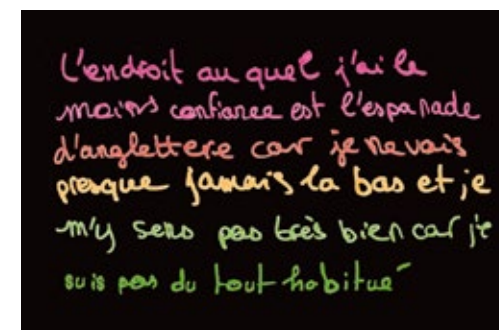 L'endroit au quel j'ai le
moins confiance est l'espanade
d'anglettere car je ne vais
presque jamais la bas et je
m'y sens pas très bien car j'e
suis pas du tout habitué